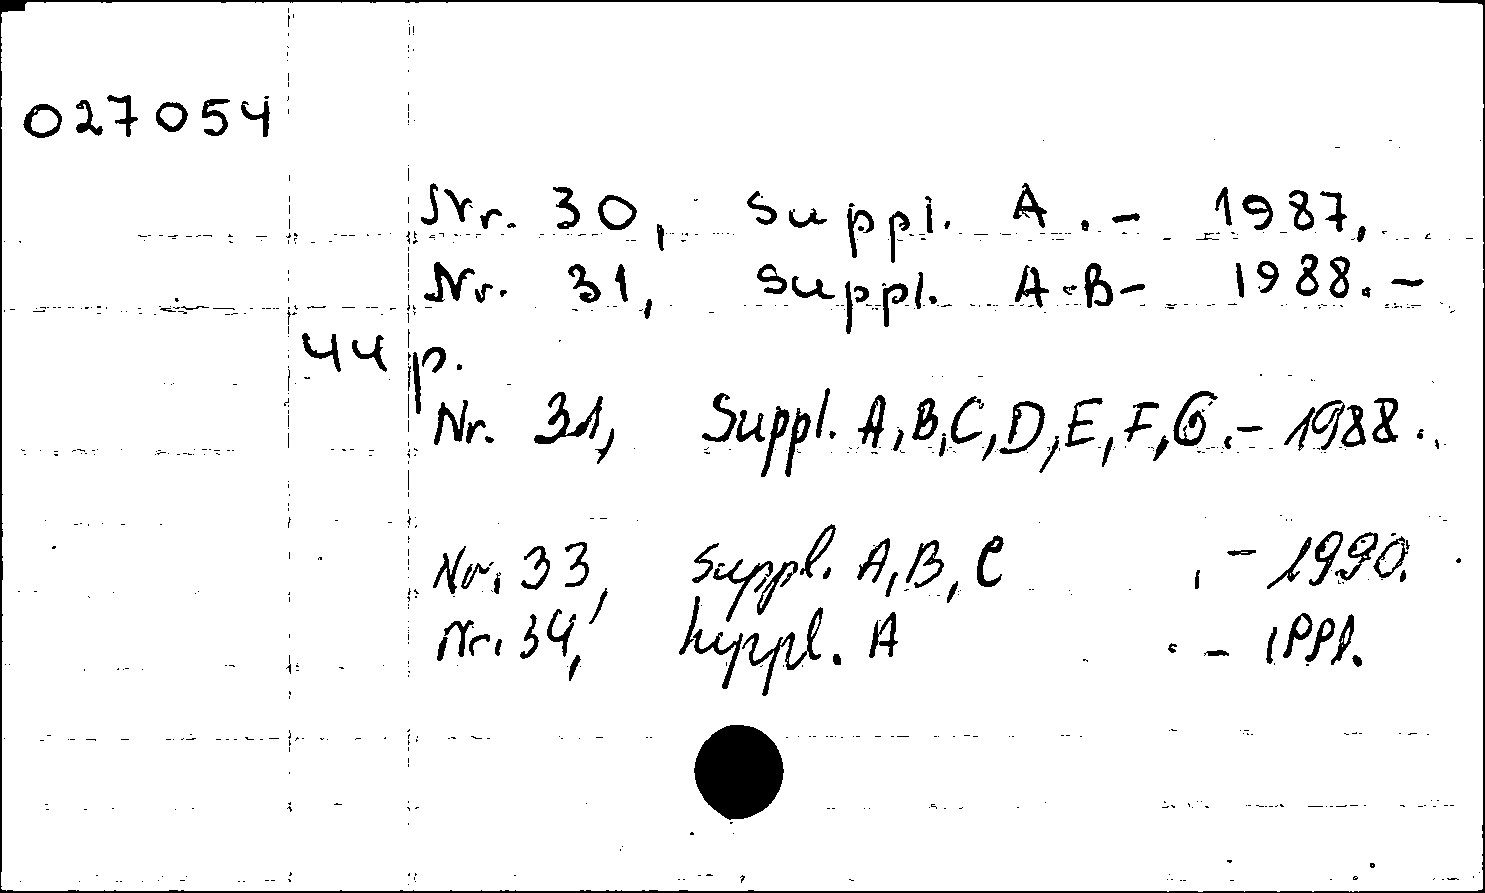 027054
Nr. 30, Suppl. A. - 1987,
Nr. 31, Suppl. A-B- 1988. -
44 p.
Nr. 31, Suppl. A, B, C, D, E, F, G. - 1988.
Nr. 33, Suppl. A, B, C . - 1990.
Nr. 34, Suppl. A . - 1991.